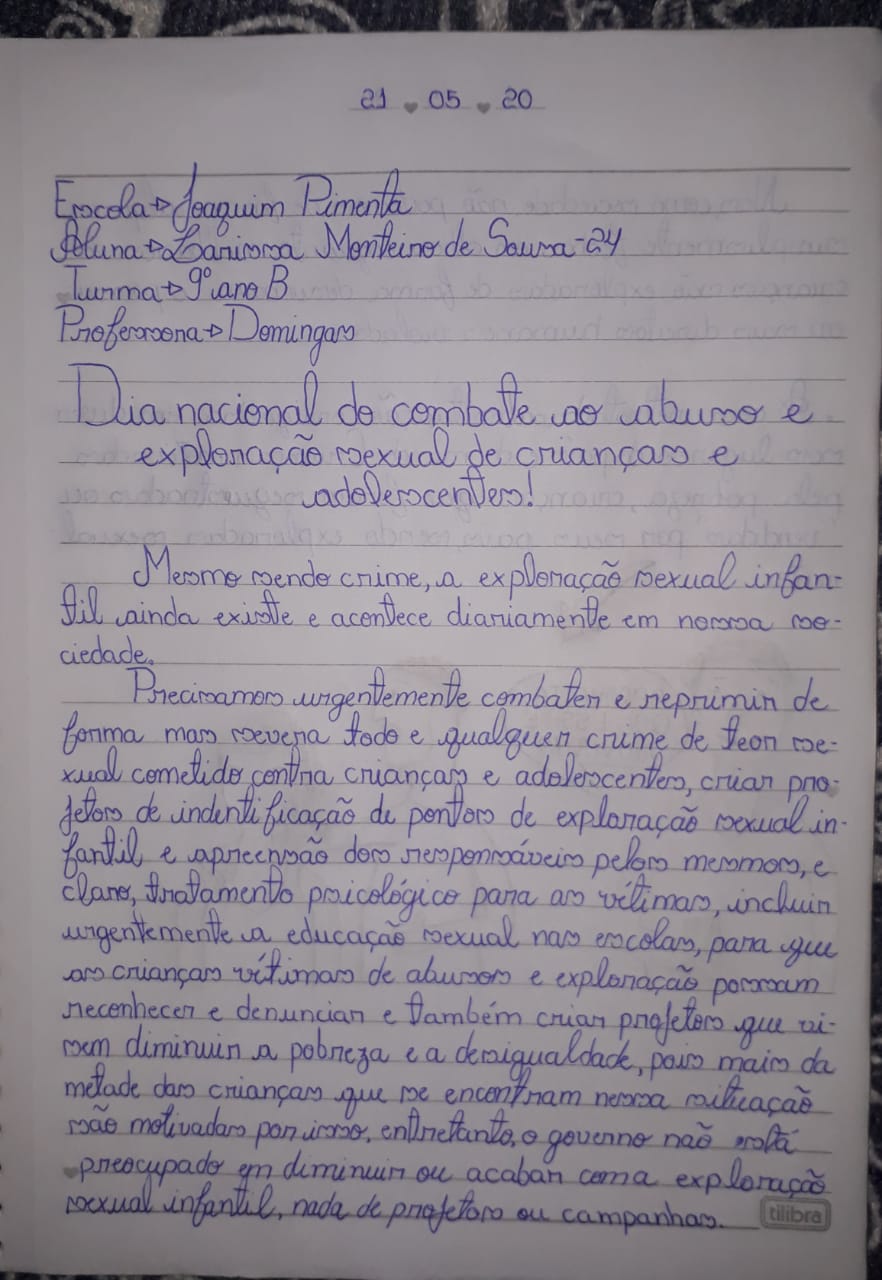 21 ♥ 05 ♥ 20
Escola → Joaquim Pimenta
Aluna → Larissa Monteiro de Sousa - 24
Turma → 9º ano B
Professora → Domingas
Dia nacional do combate ao abuso e
exploração sexual de crianças e
adolescentes!
Mesmo sendo crime, a exploração sexual infan-
til ainda existe e acontece diariamente em nossa so-
ciedade.
Precisamos urgentemente combater e reprimir de
forma mas severa todo e qualquer crime de teor se-
xual cometido contra crianças e adolescentes, criar pro-
jetos de indentificação de pontos de exploração sexual in-
fantil e apreensão dos responsáveis pelos mesmos, e
claro, tratamento psicológico para as vítimas, incluir
urgentemente a educação sexual nas escolas, para que
as crianças vítimas de abusos e exploração possam
reconhecer e denunciar e também criar projetos que vi-
sem diminuir a pobreza e a desigualdade, pois mais da
metade das crianças que se encontram nessa situação
são motivadas por isso, entretanto, o governo não está
preocupado em diminuir ou acabar com a exploração
sexual infantil, nada de projetos ou campanhas.
tilibra